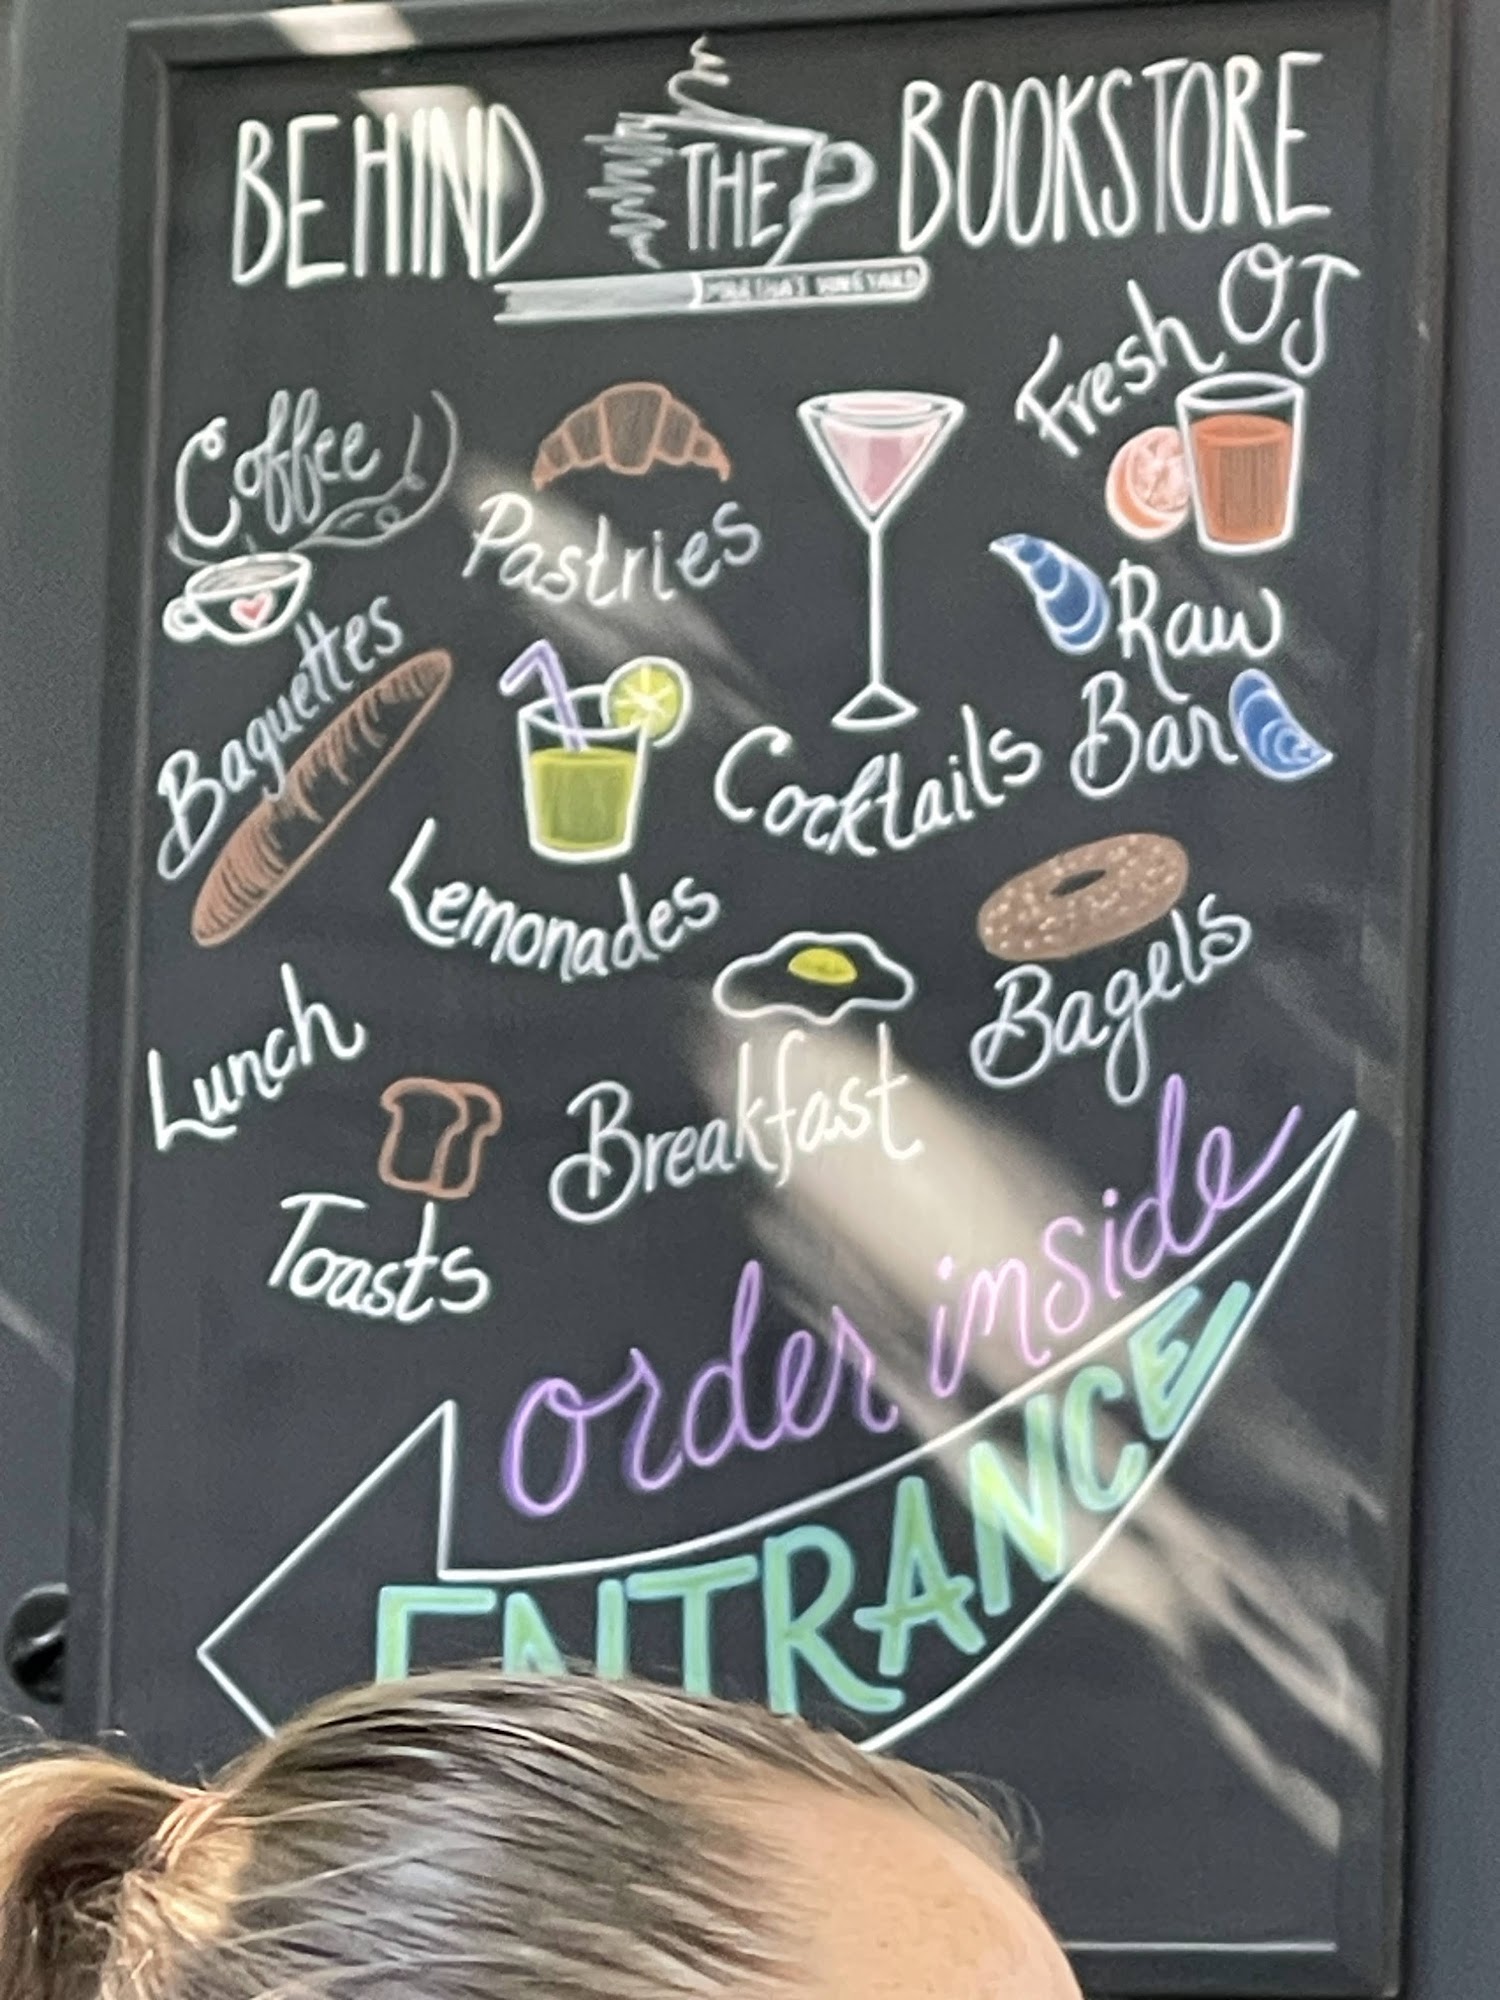 BEHIND THE BOOKSTORE
MARTHA'S VINEYARD
Fresh OJ
Coffee
Pastries
Raw
Bar
Baguettes
Cocktails
Lemonades
Bagels
Lunch
Breakfast
Toasts
order inside
ENTRANCE